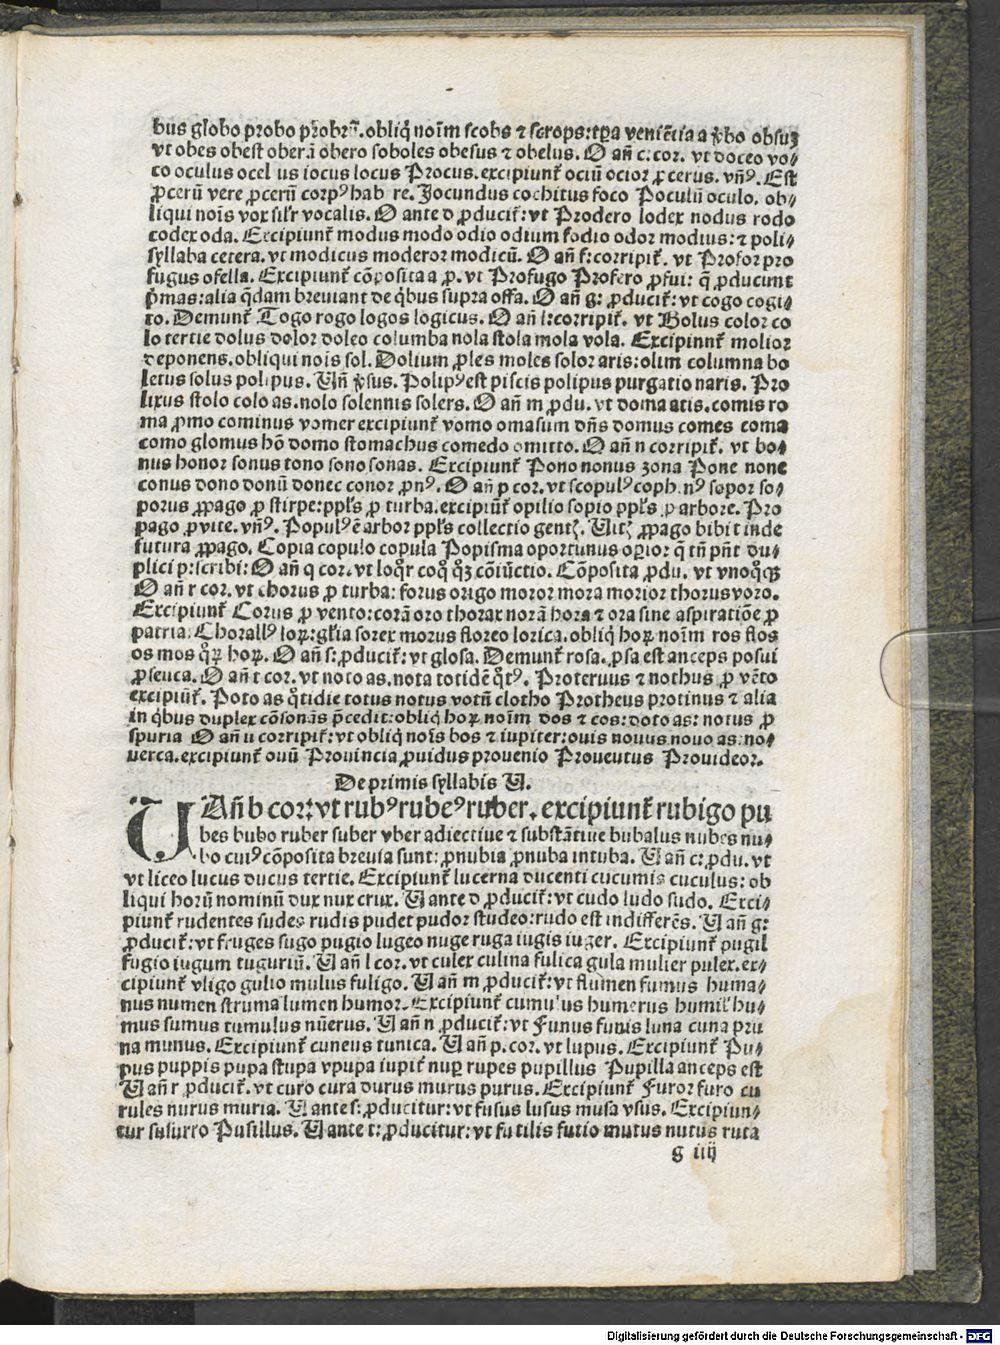 bus globo probo ꝓbobrũ. obliq̃ noĩm scobs ⁊ scrops: tp̃a veniẽtia a ꝟbo obsuꝫ
vt obes obest oberã obero soboles obesus ⁊ obelus. O añ c: cor. vt doceo vo⸗
co oculus ocel us iocus locus Procus. excipiunt᷑ ociũ ocior ꝓcerus. vñꝰ. Est
ꝓcerũ vere ꝓcerũ corpꝰ hab re. Jocundus cochitus foco Poculũ oculo. ob⸗
liqui noĩs vox sil̃r vocalis. O ante d ꝓducit᷑: vt Prodero lodex nodus rodo
codex oda. Excipiunt᷑ modus modo odio odium fodio odor modius: ⁊ poli⸗
syllaba cetera. vt modicus moderor modicũ. O añ f: corripit᷑. vt Profor pro
fugus ofella. Excipiunt᷑ cõposita a ꝓ. vt Profugo Profero ꝓfui: q̃ ꝓducunt
p̃mas: alia q̃dam breuiant de q̃bus supra offa. O añ g: ꝓducit᷑: vt cogo cogi⸗
to. Demunt᷑ Togo rogo logos logicus. O añ l: corripit᷑. vt Bolus color co
lo tertie dolus dolor doleo columba nola stola mola vola. Excipiunt᷑ molior
deponens. obliqui nois sol. Dolium ꝓles moles solor aris: olim columna bo
letus solus polipus. Uñ ꝟsus. Polipꝰ est piscis polipus purgatio naris. Pro
lixus stolo colo as. nolo solennis solers. O añ m ꝓdu. vt doma atis. comis ro
ma ꝓmo cominus vomer excipiunt᷑ vomo omasum dñs domus comes coma
como glomus hõ domo stomachus comedo omitto. O añ n corripit᷑. vt bo⸗
nus honor sonus tono sono sonas. Excipiunt᷑ Pono nonus zona Pone none
conus dono donũ donec conor ꝓnꝰ. O añ p cor. vt scopulꝰ coph nꝰ sopor so⸗
porus ꝓpago ꝓ stirpe: ppl̃s ꝓ turba. excipiũt᷑ opilio sopio ppl̃s ꝓ arbore. Pro
pago ꝓ vite. vñꝰ. Populꝰ ẽ arbor ppl̃s collectio gentꝭ. Uitꝭ ꝓpago bibit inde
futura ꝓpago. Copia copulo copula Popisma oportunus opior q̃ tñ pñt du⸗
plici p: scribi: O añ q cor. vt loq̃r coq̃ q̃ꝫ cõiũctio. Cõposita ꝓdu. vt vnoq̃qꝫ
O añ r cor. vt chorus ꝓ turba: forus origo moror mora morior thorus voro.
Excipiunt᷑ Corus ꝓ vento: corã oro thorax norã hora ⁊ ora sine aspiratiõe ꝓ
patria. Chorallꝰ loꝝ: gl̃ia sorex morus floreo lorica. obliq̃ hoꝝ noĩm ros flos
os mos q̃ꝝ hoꝝ. O añ s: ꝓducit᷑: vt glosa. Demunt᷑ rosa. ꝓsa est anceps posui
ꝓseuca. O añ t cor. vt noto as. nota totidẽ q̃tꝰ. Proteruus ⁊ nothus ꝓ vẽto
excipiũt᷑. Poto as q̃tidie totus notus votũ clotho Protheus protinus ⁊ alia
in q̃bus duplex cõsonãs p̃cedit: obliq̃ hoꝝ noĩm dos ⁊ cos: doto as: notus ꝓ
spuria O añ u corripit᷑: vt obliq̃ noĩs bos ⁊ iupiter: ouis nouus nouo as. no⸗
uerca. excipiunt᷑ ouũ Prouincia ꝓuidus prouenio Prouentus Prouideor.
De primis syllabis U.
U Añ b cor: vt rubꝰ rubeꝰ ruber. excipiunt᷑ rubigo pu
bes bubo ruber suber vber adiectiue ⁊ substãtiue bubalus nubes nu⸗
bo cuiꝰ cõposita breuia sunt: ꝓnubia ꝓnuba intuba. U añ c: ꝓdu. vt
vt liceo lucus ducus tertie. Excipiunt᷑ lucerna ducenti cucumis cuculus: ob
liqui horũ nominũ dux nux crux. U ante d ꝓducit᷑: vt cudo ludo sudo. Exci⸗
piunt᷑ rudentes sudes rudis pudet pudor studeo: rudo est indifferẽs. U añ g:
ꝓducit᷑: vt fruges sugo pugio lugeo nuge ruga iugis iuger. Excipiunt᷑ pugil
fugio iugum tuguriũ. U añ l cor. vt culex culina fulica gula mulier pulex. ex⸗
cipiunt᷑ vligo gulio mulus fuligo. U añ m ꝓducit᷑: vt flumen fumus huma⸗
nus numen struma lumen humor. Excipiunt᷑ cumulus humerus humil' hu⸗
mus sumus tumulus nũerus. U añ n ꝓducit᷑: vt Funus funis luna cuna pru
na munus. Excipiunt᷑ cuneus tunica. U añ p. cor. vt lupus. Excipiunt᷑ Pu⸗
pus puppis pupa stupa vpupa iupit᷑ nuꝑ rupes pupillus Pupilla anceps est
U añ r ꝓducit᷑. vt curo cura durus murus purus. Excipiunt᷑ Furor furo cu
rules nurus muria. U ante s: ꝓducitur: vt fusus lusus musa vsus. Excipiun⸗
tur susurro Pusillus. U ante t: ꝓducitur: vt futilis futio mutus nutus ruta
g iiij
Digitalisierung gefördert durch die Deutsche Forschungsgemeinschaft - DFG